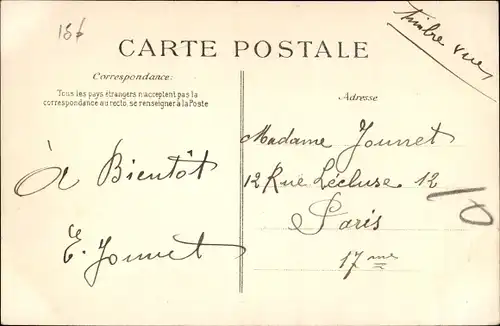 15f
Timbre vue
CARTE POSTALE
Correspondance:
Tous les pays étrangers n'acceptent pas la
correspondance au recto, se renseigner à la Poste
Adresse
À Bientôt
E. Jounet
Madame Jounet
12 Rue Lécluse 12
Paris
17me
10